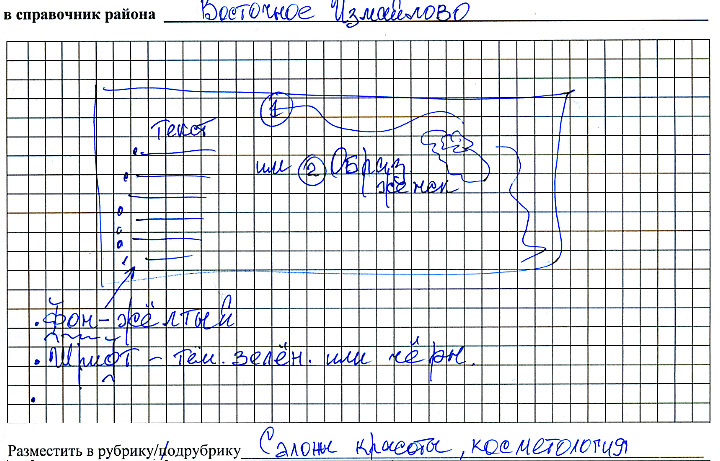 в справочник района Восточное Измайлово
1
Текст
или 2 Образ
женск
• Фон - жёлтый
• Шрифт - тём. зелён. или чёрн.
Разместить в рубрику/подрубрику Салоны красоты, косметология